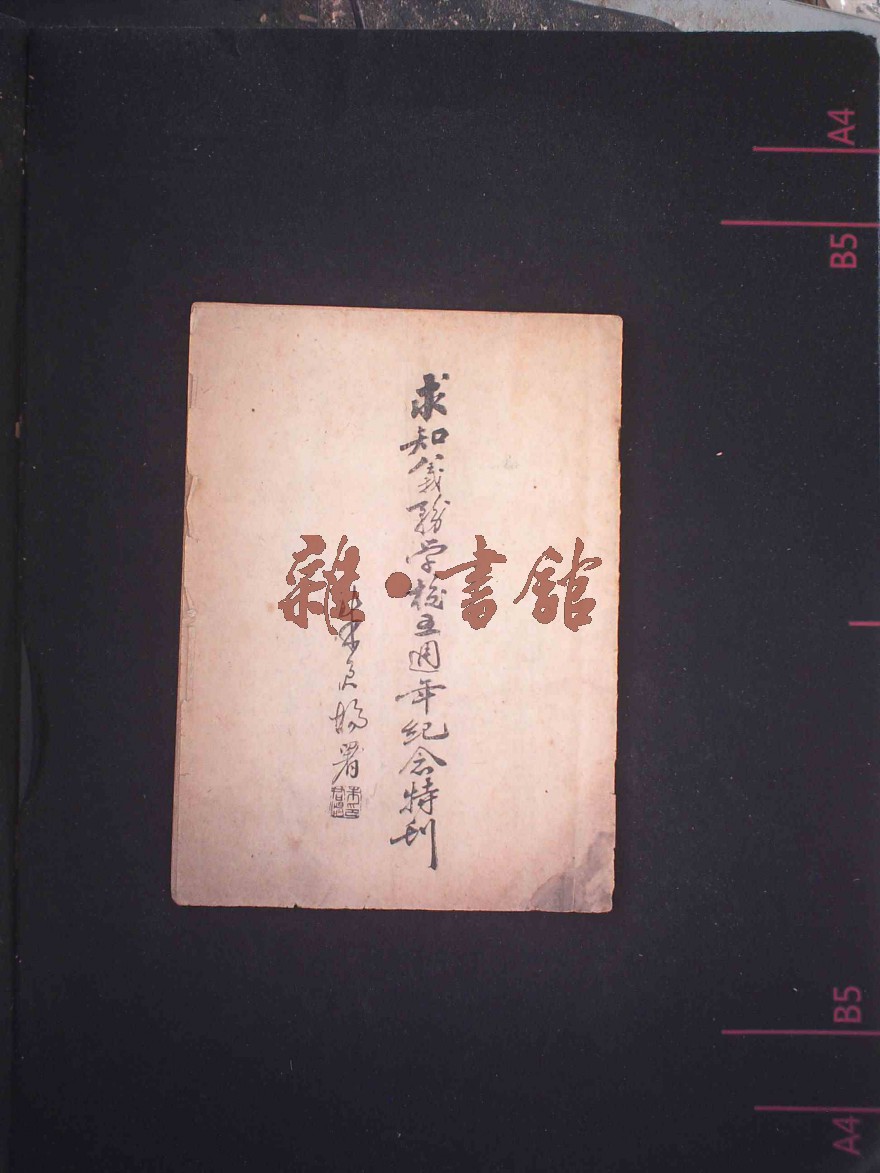 求知義務学校五週年紀念特刊
朱良楊署
雜·書館
A4
B5
B5
A4